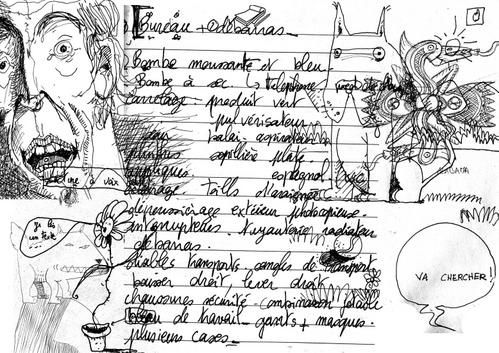 Bureau + débarras
Bombe moussante et bleu.
Bombe à sec. → téléphone
carrelage: produit vert
pulvérisateur
balai. aspirateur
plinthes serpillière plate.
espagnol
Toiles d'araignée
dépoussiérage extérieur photocopieuse.
interrupteurs. Tuyauterie radiateur
débarras.
diables transports. sangles de transport
baisser droit, lever droit
chaussures sécurité - combinaison jetable
de travail - gants + masques.
plusieurs cases
lire à voix
j'ai lu
un texte
...
VA CHERCHER!